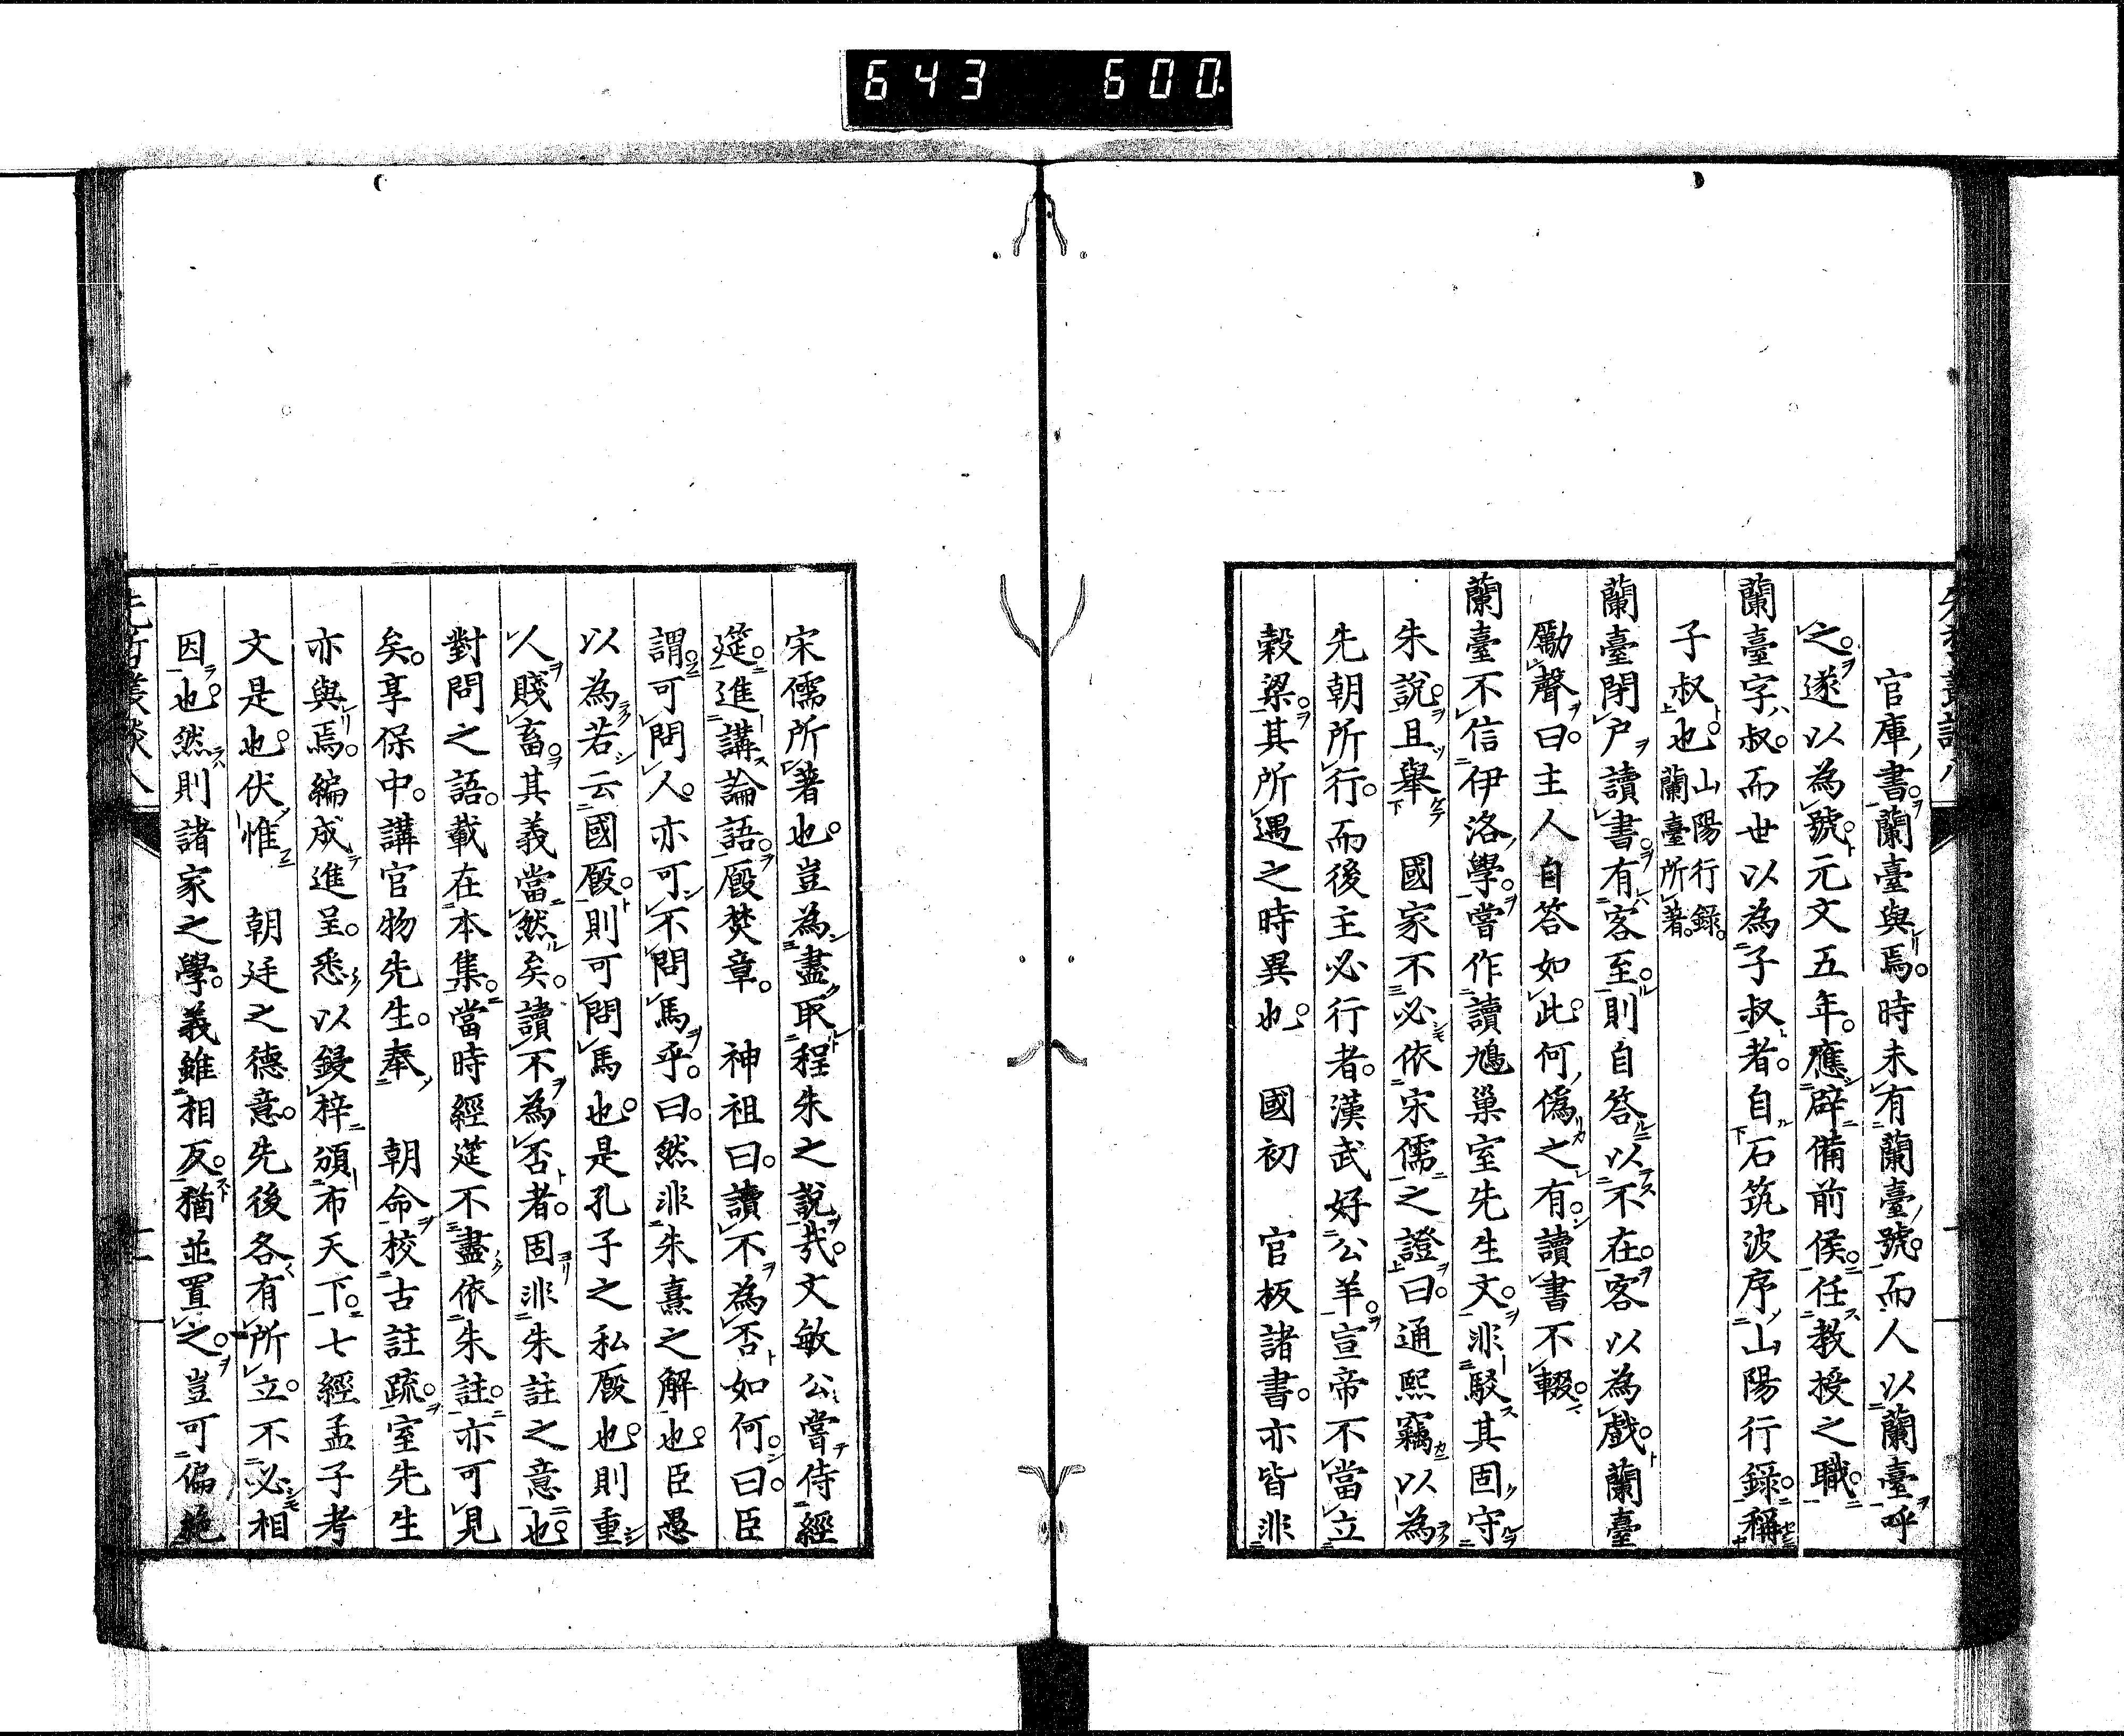 643 600.
官庫書。蘭臺與焉。時未有蘭臺號。而人以蘭臺呼
之。遂以為號。元文五年。應辟備前侯。任教授之職。
蘭臺字叔。而世以為子叔者。自石筑波序山陽行錄。稱
子叔也。山陽行錄。蘭臺所著。
蘭臺閉戶讀書。有客至。則自答以不在。客以為戲。蘭臺
勵聲曰。主人自答如此。何偽之有。讀書不輟。
蘭臺不信伊洛學。嘗作讀鳩巢室先生文。非駁其固守
朱說。且舉 國家不必依宋儒之證曰。通熙竊以為
先朝所行。而後主必行者。漢武好公羊。宣帝不當立
穀梁。其所遇之時異也。 國初 官板諸書。亦皆非
宋儒所著也。豈為盡取程朱之說哉。文敏公嘗侍經
筵。進講論語。廄焚章。 神祖曰。讀不為否如何。曰。臣
謂。可問人。亦可不問馬乎。曰。然非朱熹之解也。臣愚
以為若云國廄。則可問馬也。是孔子之私廄也。則重
人賤畜。其義當然矣。讀不為否者。固非朱註之意也。
對問之語。載在本集。當時經筵不盡依朱註。亦可見
矣。享保中。講官物先生。奉 朝命校古註疏。室先生
亦與焉。編成進呈。悉以鋟梓頒布天下。七經孟子考
文是也。伏惟 朝廷之德意。先後各有所立。不必相
因也。然則諸家之學。義雖相反。猶並置之。豈可偏絶